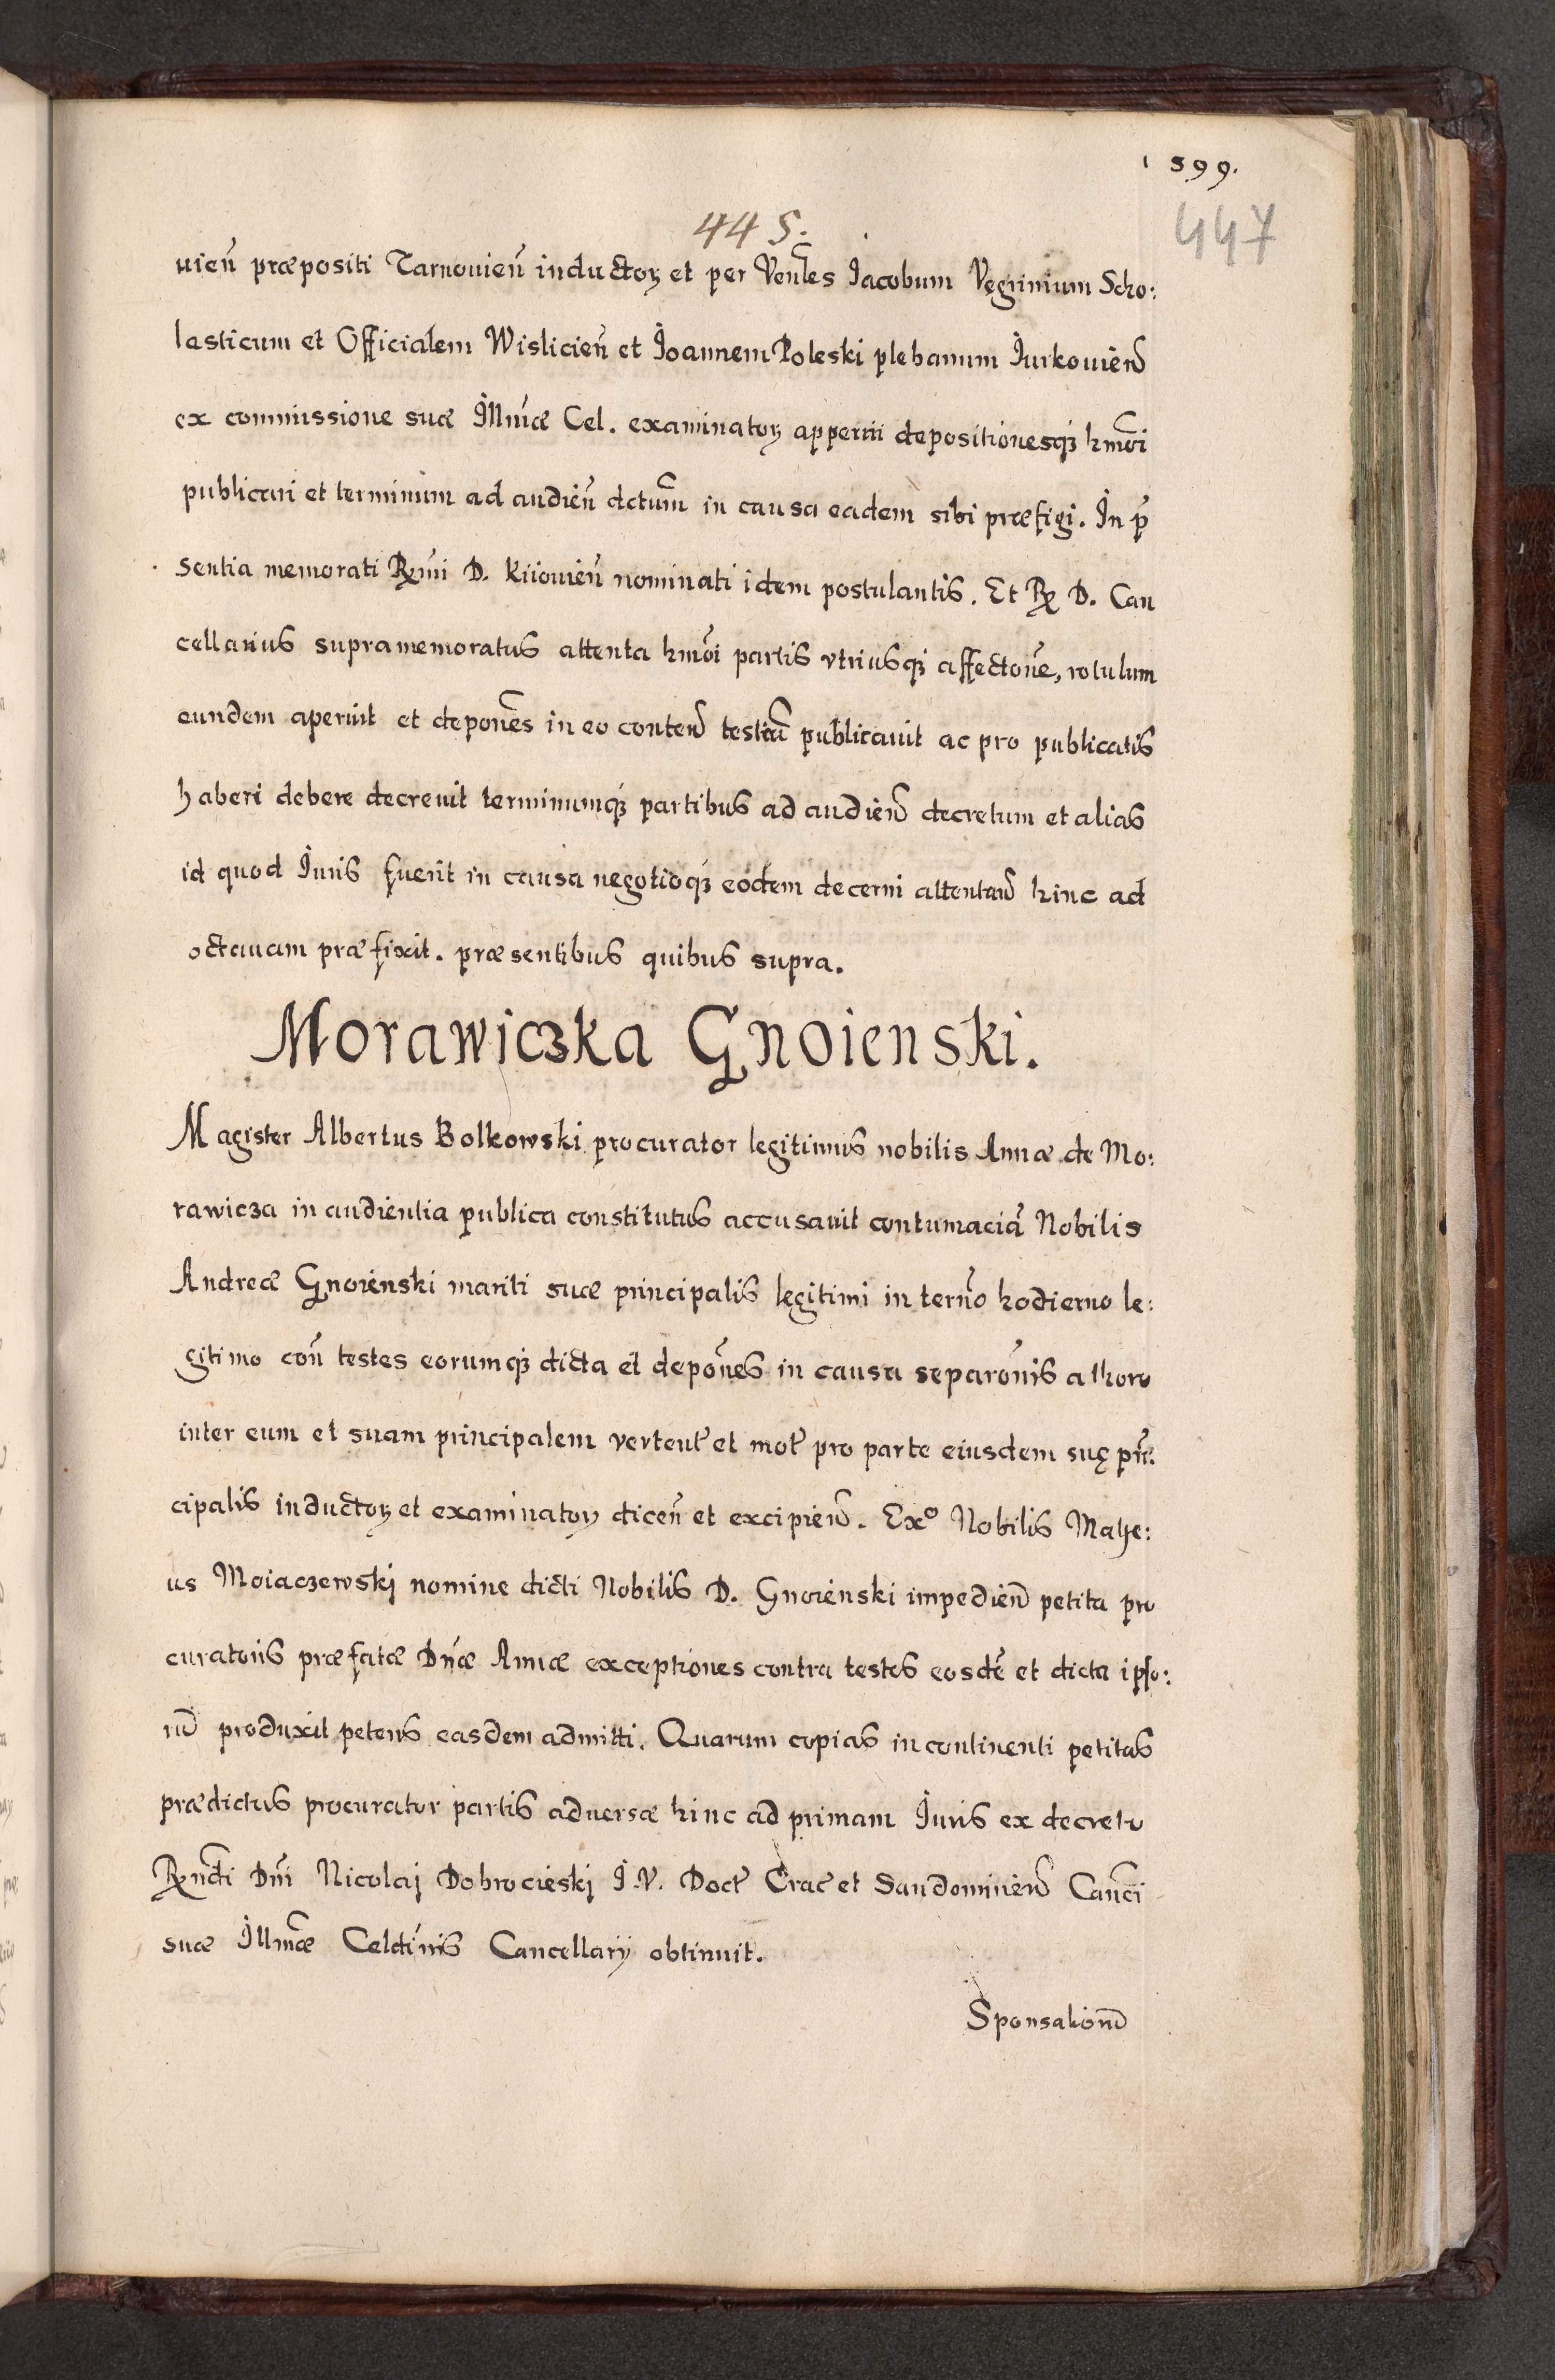 1599.
445.
447
uien̄ præpositi Tarnouien̄ inductoꝝ et per Venl̃es Iacobum Veginium Scho:
lasticum et Officialem Wislicien̄ et Ioannem Poleski plebanum Iurkouien̄
ex commissione suæ Illmæ Cel. examinatoꝝ apperiri depositionesqꝫ hmo͂i
publicari et terminum ad audien̄ dctum̃ in causa eadem sibi præfigi. In p̃
sentia memorati Rm̃i D. Kiiouien̄ nominati idem postulantis. Et R D. Can
cellarius supramemoratus attenta hmo͂i partis vtriusqꝫ affecto͂ne, rotulum
eundem aperuit et depo͂nes in eo conten̄ testiũ publicauit ac pro publicatis
haberi debere decreuit terminumqꝫ partibus ad audien̄ decretum et alias
id quod Iuris fuerit in causa negotioqꝫ eodem decerni attentan̄ hinc ad
octauam præfixit. præsentibus quibus supra.
Morawiczka Gnoienski.
Magister Albertus Bolkowski procurator legitimus nobilis Annæ de Mo:
rawicza in audientia publica constitutus accusauit contumaciã Nobilis
Andreæ Gnoienski mariti suæ principalis legitimi in termño hodierno le:
gitimo con̄ testes eorumqꝫ dicta et depo͂nes in causa separo͂nis a thoro
inter eum et suam principalem vertent̃ et mot̃ pro parte eiusdem suę prĩ:
cipalis inductoꝝ et examinatoꝝ dicen̄ et excipien̄. Exº Nobilis Matthe:
us Moiaczewskj nomine dicti Nobilis D. Gnoienski impedien̄ petita pro
curatoris præfatæ Dn̄æ Annæ exceptiones contra testes eosdẽ et dicta ipso:
rũ produxit petens easdem admitti. Quarum copias incontinenti petitas
prædictus procurator partis aduersæ hinc ad primam Iuris ex decreto
Rn̄di Dn̄i Nicolaj Dobrocieskj I.V. Doct̃ Crac̃ et Sandomirien̄ Cañci
suæ Illm̃æ Celdinis Cancellarij obtinuit.
Sponsalionũ